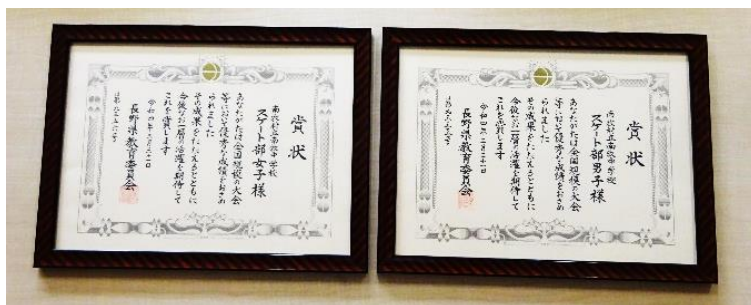 賞状
南牧村立南牧中学校
スケート部女子様
あなたがたは全国規模の大会
等において優秀な成績をおさめ
られました
その成果をたたえるとともに
今後なお一層の活躍を期待して
これを賞します
長野県教育委員会
賞状
南牧村立南牧中学校
スケート部男子様
あなたがたは全国規模の大会
等において優秀な成績をおさめ
られました
その成果をたたえるとともに
今後なお一層の活躍を期待して
これを賞します
長野県教育委員会